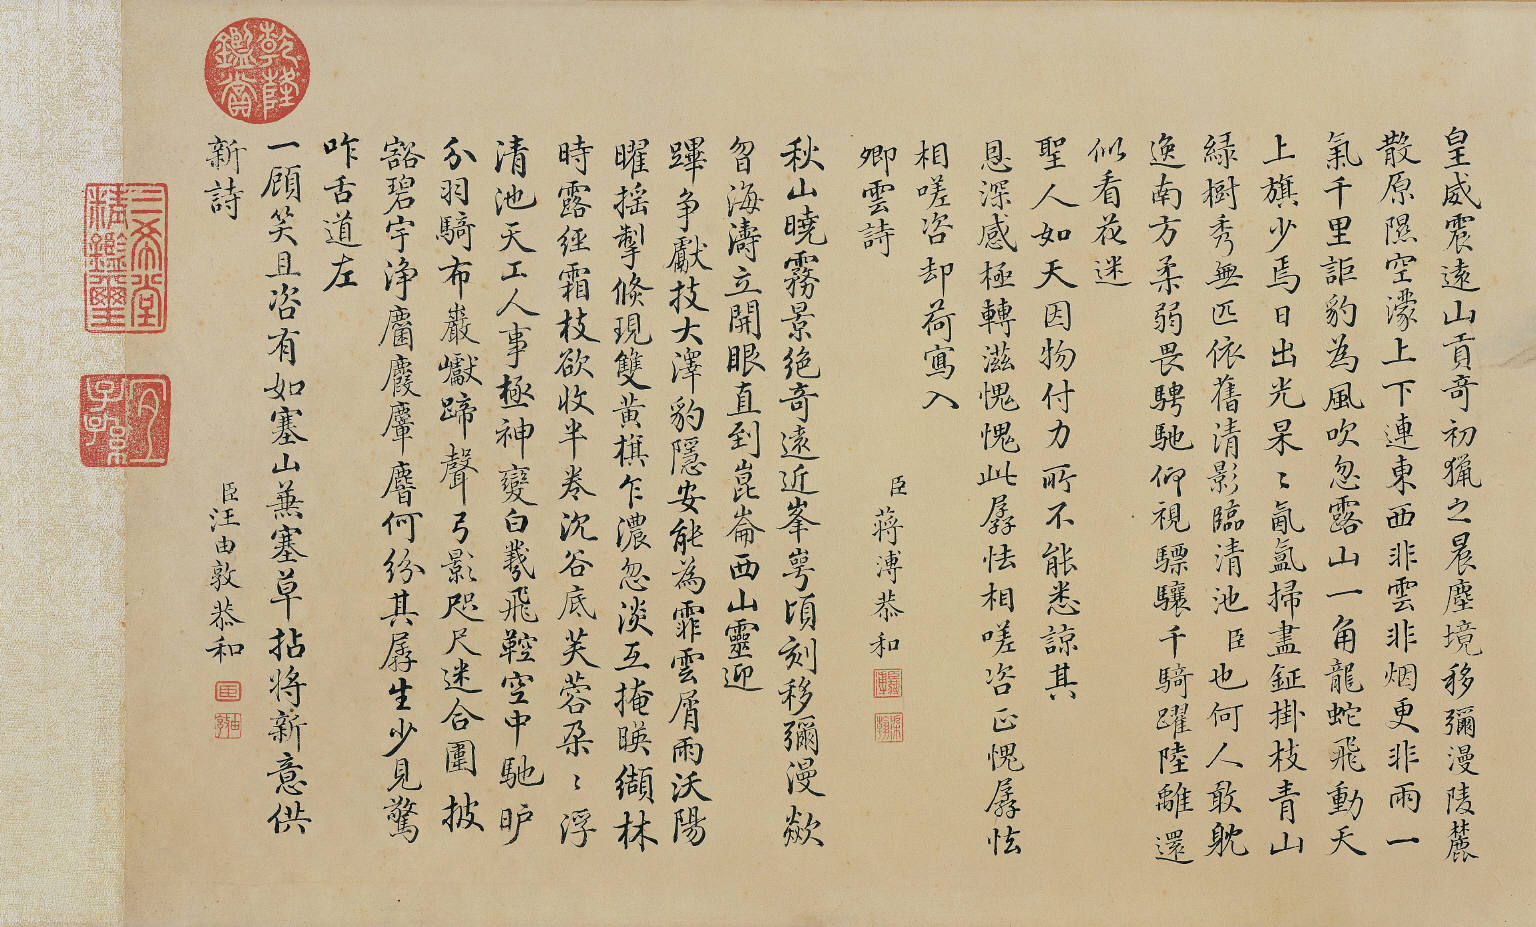 皇威震遠山貢奇初獵之晨塵境移彌漫陵麓
散原隰空濛上下連東西非雲非烟更非雨一
氣千里詎豹為風吹忽露山一角龍蛇飛動天
上旗少焉日出光杲〻氤氳掃盡鉦掛枝青山
緑樹秀無匹依舊清影臨清池臣也何人敢躭
逸南方柔弱畏騁馳仰視驃驤千騎躍陸離還
似看花迷
聖人如天因物付力所不能悉諒其
恩深感極轉滋愧愧此孱怯相嗟咨正愧孱怯
相嗟咨却荷寫入
卿雲詩
臣蔣溥恭和
秋山曉霧景絶奇遠近峯崿頃刻移彌漫歘
曶海濤立開眼直到崑崙西山靈迎
蹕争獻技大澤豹隱安能為霏雲屑雨沃陽
曜揺掣倏現雙黄旗乍濃忽淡互掩暎纈林
時露經霜枝欲收半卷沉谷底芙蓉朶〻浮
清池天工人事極神變白羲飛鞚空中馳旷
分羽騎布巖巘蹄聲弓影咫尺迷合圍披
豁碧宇浄麕麚麞麿何紛其孱生少見驚
咋舌道左
一顧笑且咨有如塞山蕪塞草拈將新意供
新詩
臣汪由敦恭和
乾隆鑑賞
三希堂精鑑璽
宜子孫